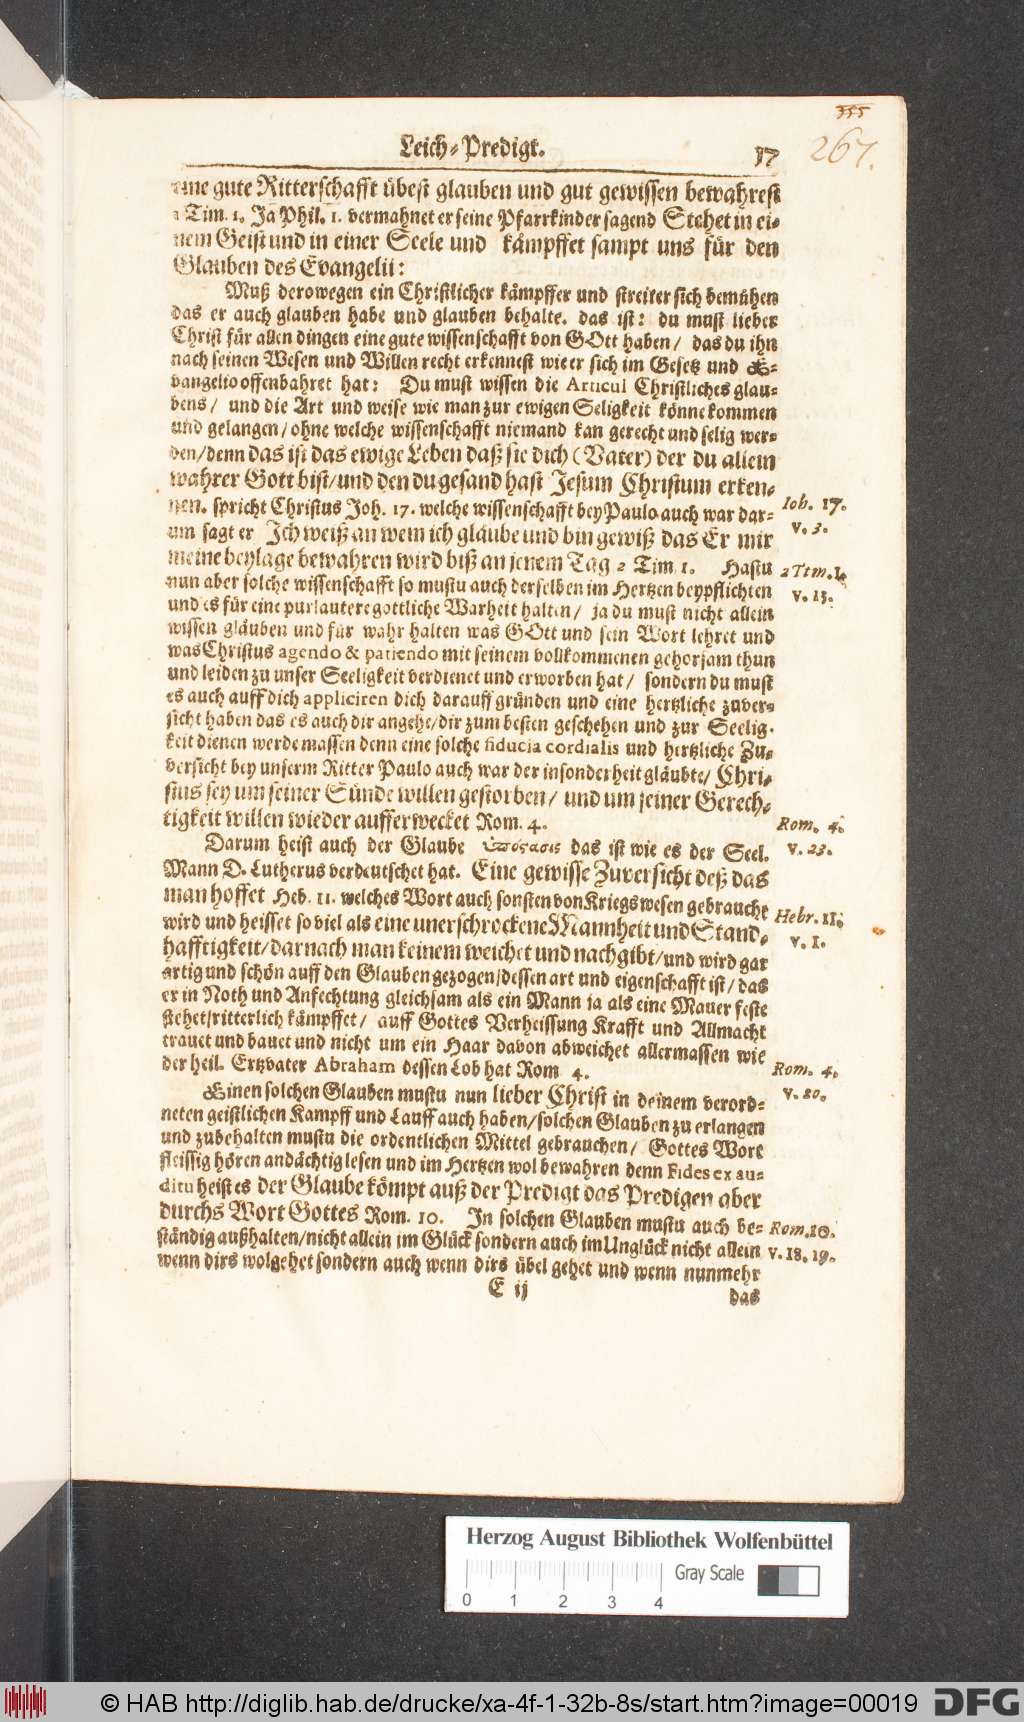 355
267.
Leich-Predigt. 17
eine gute Ritterschafft übest glauben und gut gewissen bewahrest
1 Tim. 1. Ja Phil. 1. vermahnet er seine Pfarrkinder sagend Stehet in ei-
nem Geist und in einer Seele und kämpffet sampt uns für den
Glauben des Evangelii:
Muß derowegen ein Christlicher kämpffer und streiter sich bemühen
das er auch glauben habe und glauben behalte. das ist: du must lieber
Christ für allen dingen eine gute wissenschafft von GOtt haben/ das du ihn
nach seinen Wesen und Willen recht erkennest wie er sich im Gesetz und E-
vangelio offenbahret hat: Du must wissen die Articul Christliches glau-
bens/ und die Art und weise wie man zur ewigen Seligkeit könne kommen
und gelangen/ ohne welche wissenschafft niemand kan gerecht und selig wer-
den/ denn das ist das ewige Leben daß sie dich (Vater) der du allein
wahrer Gott bist/ und den du gesand hast Jesum Christum erken-
nen. spricht Christus Joh. 17. welche wissenschafft bey Paulo auch war dar-
Ioh. 17.
v. 3.
um sagt er Ich weiß an wem ich gläube und bin gewiß das Er mir
meine beylage bewahren wird biß an jenem Tag 2 Tim. 1. Hastu
2 Tim. 1.
v. 13.
nun aber solche wissenschafft so mustu auch derselben im Hertzen beypflichten
und es für eine pur lautere gottliche Warheit halten/ ja du must nicht allein
wissen gläuben und für wahr halten was GOtt und sein Wort lehret und
was Christus agendo & patiendo mit seinem vollkommenen gehorsam thun
und leiden zu unser Seeligkeit verdienet und erworben hat/ sondern du must
es auch auff dich appliciren dich darauff gründen und eine hertzliche zuver-
sicht haben das es auch dir angehe/ dir zum besten geschehen und zur Seelig-
keit dienen werde massen denn eine solche fiducia cordialis und hertzliche Zu-
versicht bey unserm Ritter Paulo auch war der insonderheit gläubte/ Chri-
stus sey um seiner Sünde willen gestorben/ und um seiner Gerech-
tigkeit willen wieder aufferwecket Rom. 4.
Rom. 4.
v. 23.
Darum heist auch der Glaube ὑπόςασις das ist wie es der Seel.
Mann D. Lutherus verdeutschet hat. Eine gewisse Zuversicht deß das
man hoffet Heb. 11. welches Wort auch sonsten von Kriegswesen gebraucht
Hebr. 11.
v. 1.
wird und heisset so viel als eine unerschrockene Mannheit und Stand-
hafftigkeit/ darnach man keinem weichet und nachgibt/ und wird gar
artig und schön auff den Glauben gezogen/ dessen art und eigenschafft ist/ das
er in Noth und Anfechtung gleichsam als ein Mann ja als eine Mauer feste
stehet/ ritterlich kämpffet/ auff Gottes Verheissung Krafft und Allmacht
trauet und bauet und nicht um ein Haar davon abweichet allermassen wie
der heil. Ertzvater Abraham dessen Lob hat Rom 4.
Rom. 4.
v. 20.
Einen solchen Glauben mustu nun lieber Christ in deinem verord-
neten geistlichen Kampff und Lauff auch haben/ solchen Glauben zu erlangen
und zubehalten mustu die ordentlichen Mittel gebrauchen/ Gottes Wort
fleissig hören andächtig lesen und im Hertzen wol bewahren denn Fides ex au-
ditu heist es der Glaube kömpt auß der Predigt das Predigen aber
durchs Wort Gottes Rom. 10. In solchen Glauben mustu auch be-
Rom. 10.
v. 18. 19.
ständig außhalten/ nicht allein im Glück sondern auch im Unglück nicht allein
wenn dirs wolgehet sondern auch wenn dirs übel gehet und wenn nunmehr
E ij
das
Herzog August Bibliothek Wolfenbüttel
Gray Scale
0 1 2 3 4
© HAB http://diglib.hab.de/drucke/xa-4f-1-32b-8s/start.htm?image=00019
DFG